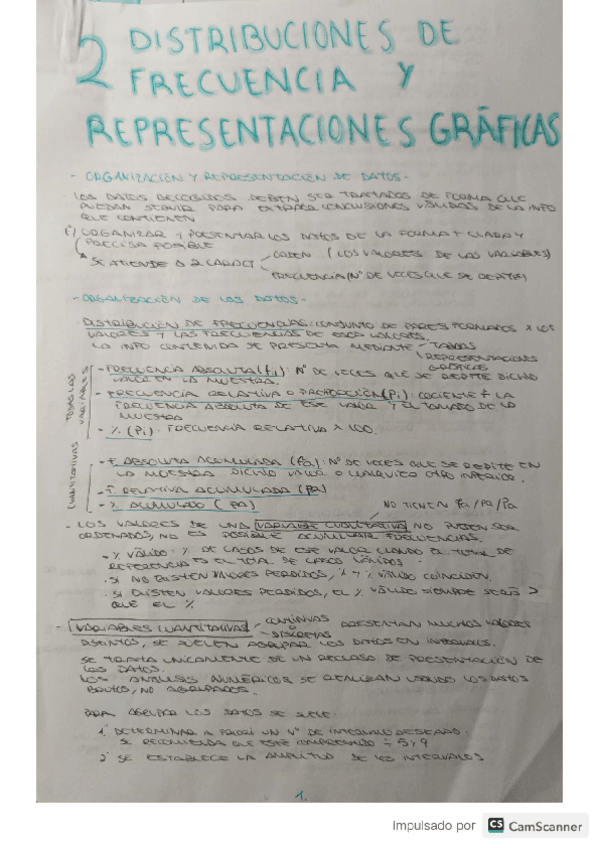 2 DISTRIBUCIONES DE
FRECUENCIA Y
REPRESENTACIONES GRÁFICAS
- ORGANIZACIÓN Y REPRESENTACIÓN DE DATOS -
LOS DATOS RECOGIDOS DEBEN SER TRATADOS DE FORMA QUE
PUEDAN SERVIR PARA EXTRAER CONCLUSIONES VÁLIDAS DE LA INFO
QUE CONTIENEN
ORGANIZAR Y PRESENTAR LOS DATOS DE LA FORMA + CLARA Y
PRECISA POSIBLE
* SE ATIENDE A 2 CARACT - ORDEN (LOS VALORES DE LAS VARIABLES)
FRECUENCIA (Nº DE VECES QUE SE REPITE)
- ORGANIZACIÓN DE LOS DATOS -
DISTRIBUCIÓN DE FRECUENCIAS: CONJUNTO DE PARES FORMADOS X LOS
VALORES Y LAS FRECUENCIAS DE ESOS VALORES.
LA INFO CONTENIDA SE PRESENTA MEDIANTE - TABLAS
REPRESENTACIONES
GRÁFICAS
TODAS LAS
VARIABLES
- FRECUENCIA ABSOLUTA (fi): Nº DE VECES QUE SE REPITE DICHO
VALOR EN LA MUESTRA.
- FRECUENCIA RELATIVA O PROPORCIÓN (Pi): COCIENTE ÷ LA
FRECUENCIA ABSOLUTA DE ESE VALOR Y EL TAMAÑO DE LA
MUESTRA
- % (Pi): FRECUENCIA RELATIVA X 100.
CUANTITATIVAS
- F. ABSOLUTA ACUMULADA (fa): Nº DE VECES QUE SE REPITE EN
LA MUESTRA DICHO VALOR O CUALQUIER OTRO INFERIOR.
- F. RELATIVA ACUMULADA (Pa)
- % ACUMULADO (Pa)
NO TIENEN fa/pa/Pa
- LOS VALORES DE UNA VARIABLE CUALITATIVA NO PUEDEN SER
ORDENADOS, NO ES POSIBLE ACUMULAR FRECUENCIAS.
- % VÁLIDO: % DE CASOS DE ESE VALOR CUANDO EL TOTAL DE
REFERENCIA ES EL TOTAL DE CASOS VÁLIDOS
. SI NO EXISTEN VALORES PERDIDOS, % Y % VÁLIDO COINCIDEN.
. SI EXISTEN VALORES PERDIDOS, EL % VÁLIDO SIEMPRE SERÁ >
QUE EL %
- VARIABLES CUANTITATIVAS - CONTINUAS PRESENTAN MUCHOS VALORES
DISCRETAS
DISTINTOS, SE SUELEN AGRUPAR LOS DATOS EN INTERVALOS.
SE TRATA UNICAMENTE DE UN RECURSO DE PRESENTACIÓN DE
LOS DATOS.
LOS ANÁLISIS NUMÉRICOS SE REALIZAN USANDO LOS DATOS
BRUTOS, NO AGRUPADOS.
PARA AGRUPAR LOS DATOS SE SUELE:
1. DETERMINAR A PRIORI UN Nº DE INTERVALO DESEADO.
SE RECOMIENDA QUE ESTÉ COMPRENDIDO ÷ 5 Y 9
2. SE ESTABLECE LA AMPLITUD DE LOS INTERVALOS
1.
Impulsado por CS CamScanner